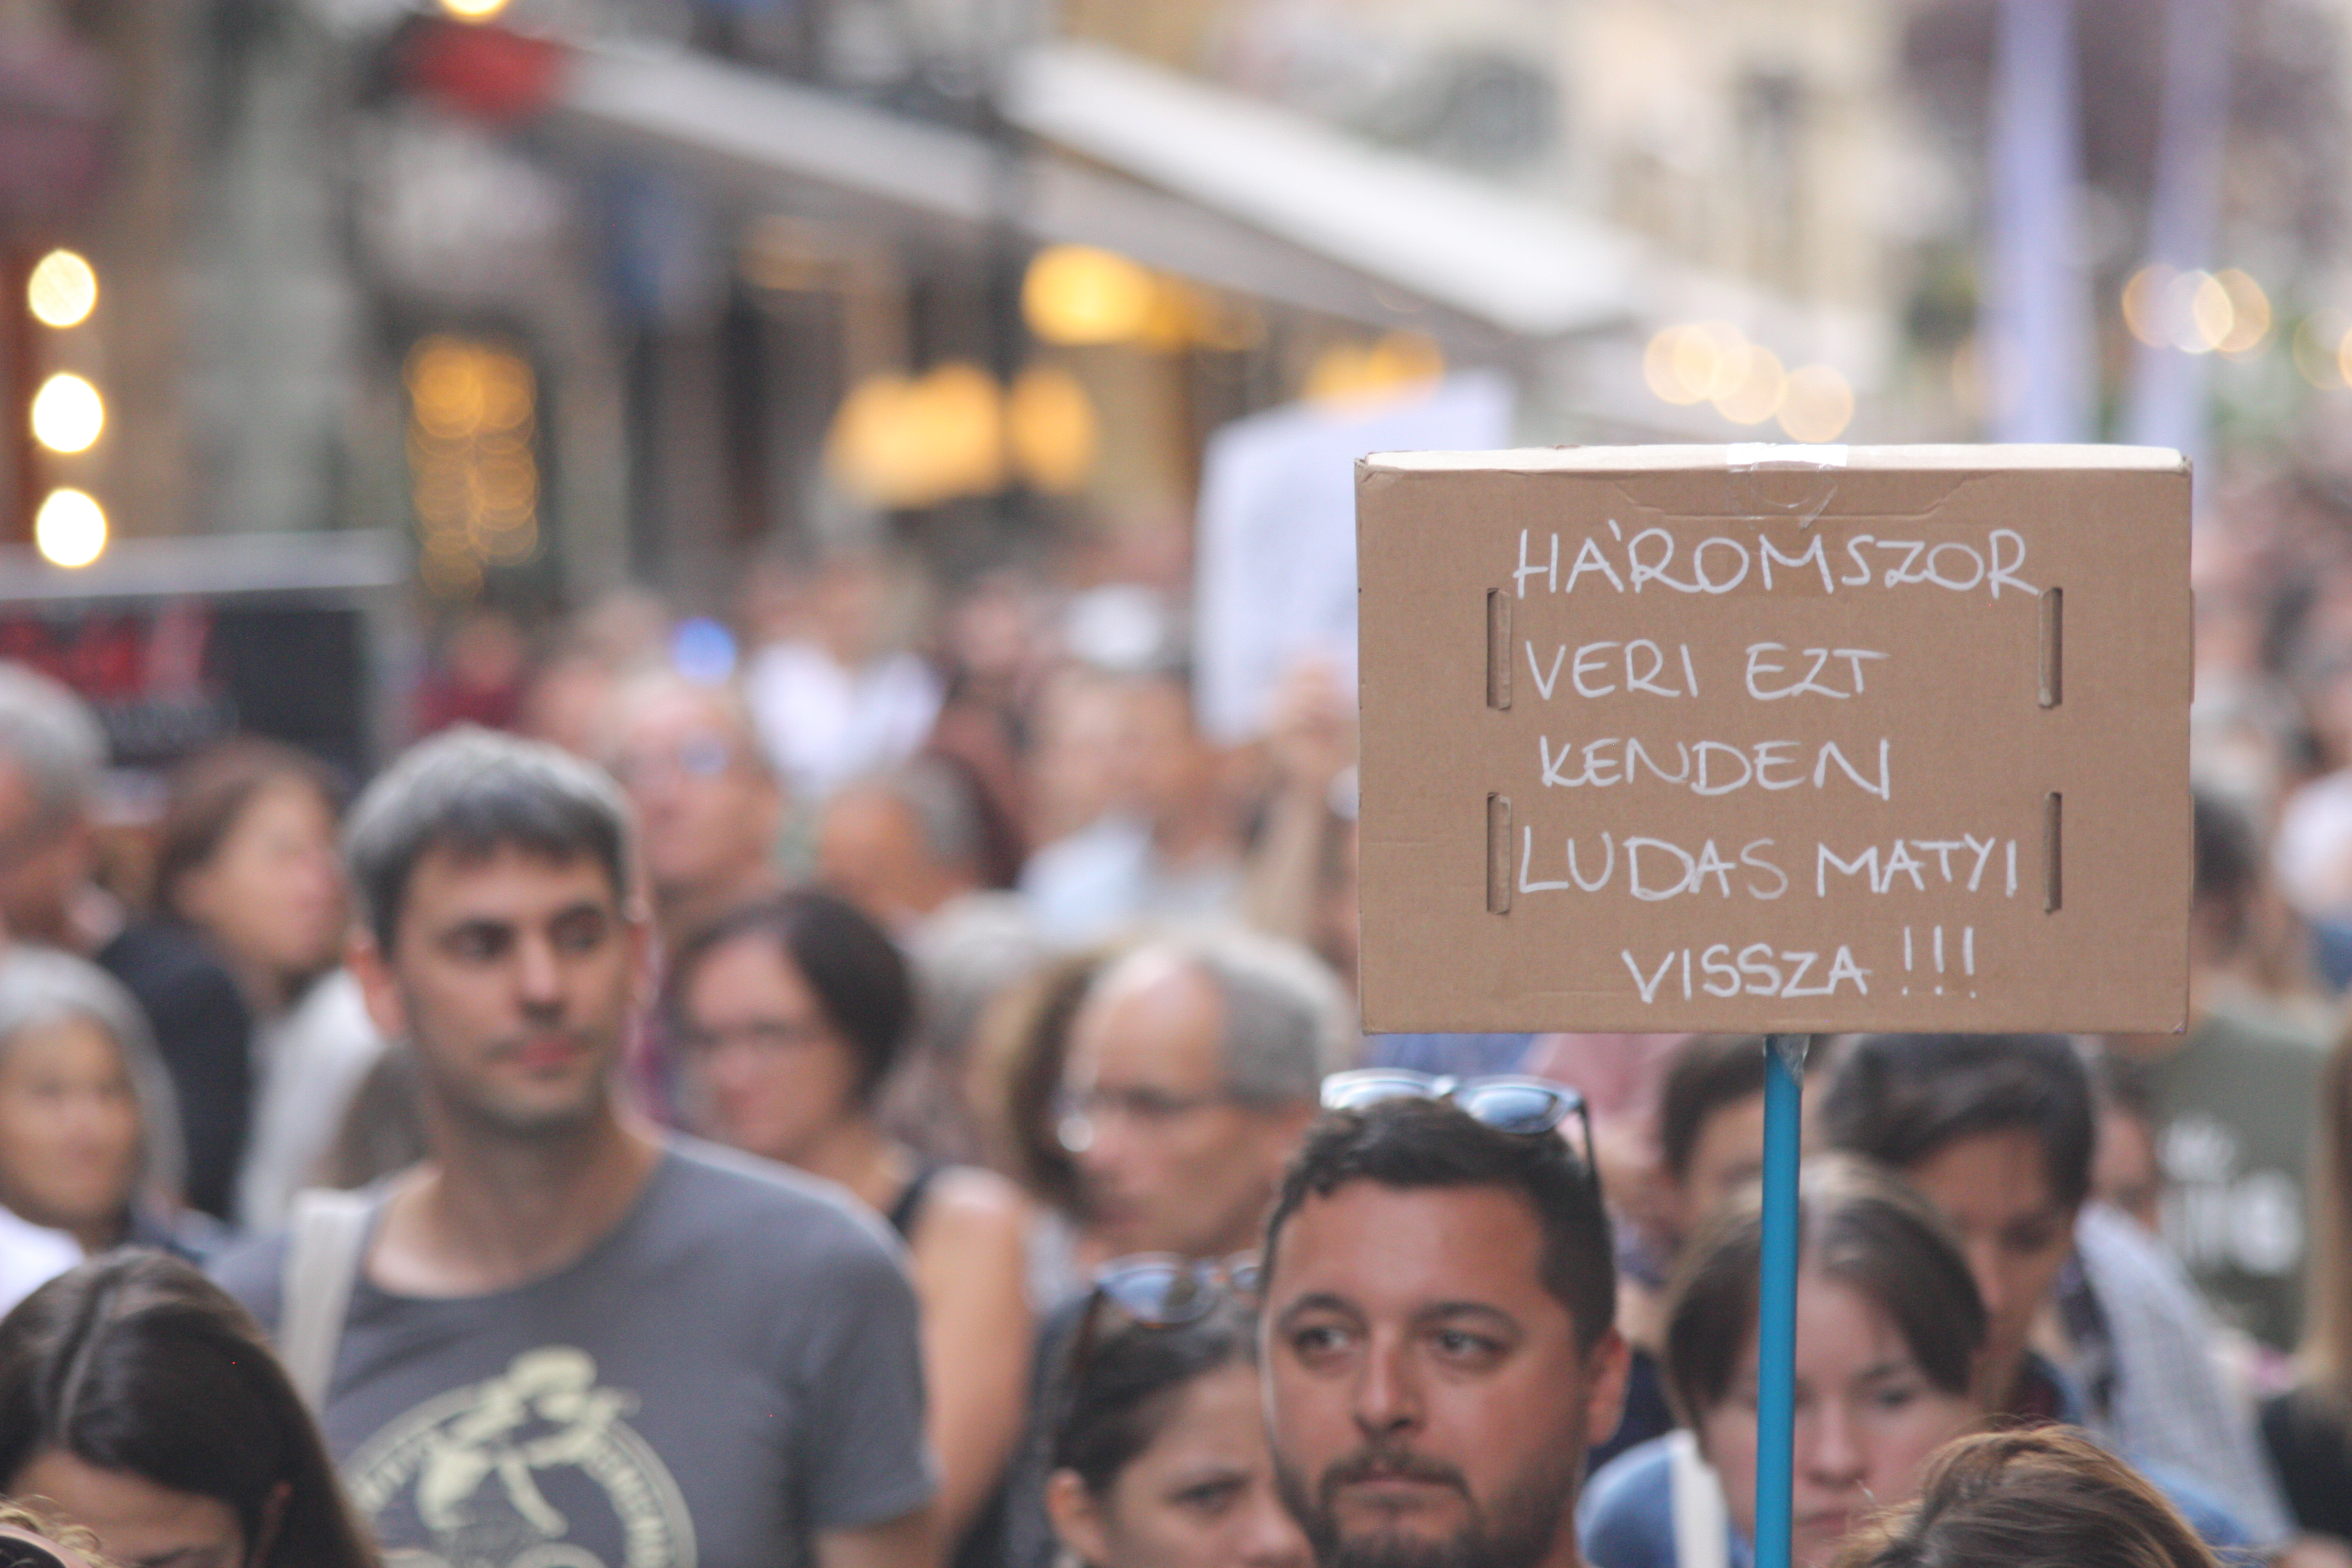 HÁROMSZOR
VERI EZT
KENDEN
LUDAS MATYI
VISSZA!!!